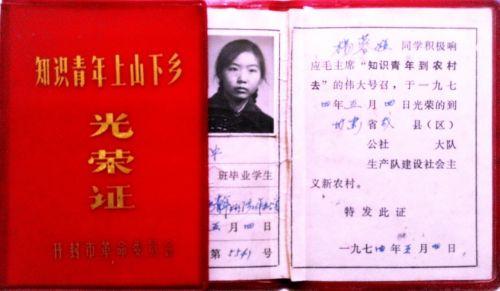 知识青年上山下乡
光
荣
证
开封市革命委员会
毕
班毕业学生
五月四日
第 5541 号
同学积极响
应毛主席“知识青年到农村
去”的伟大号召，于一九七
四年五月四日光荣的到
省 县（区）
公社 大队
生产队建设社会主
义新农村。
特发此证
一九七四年五月四日